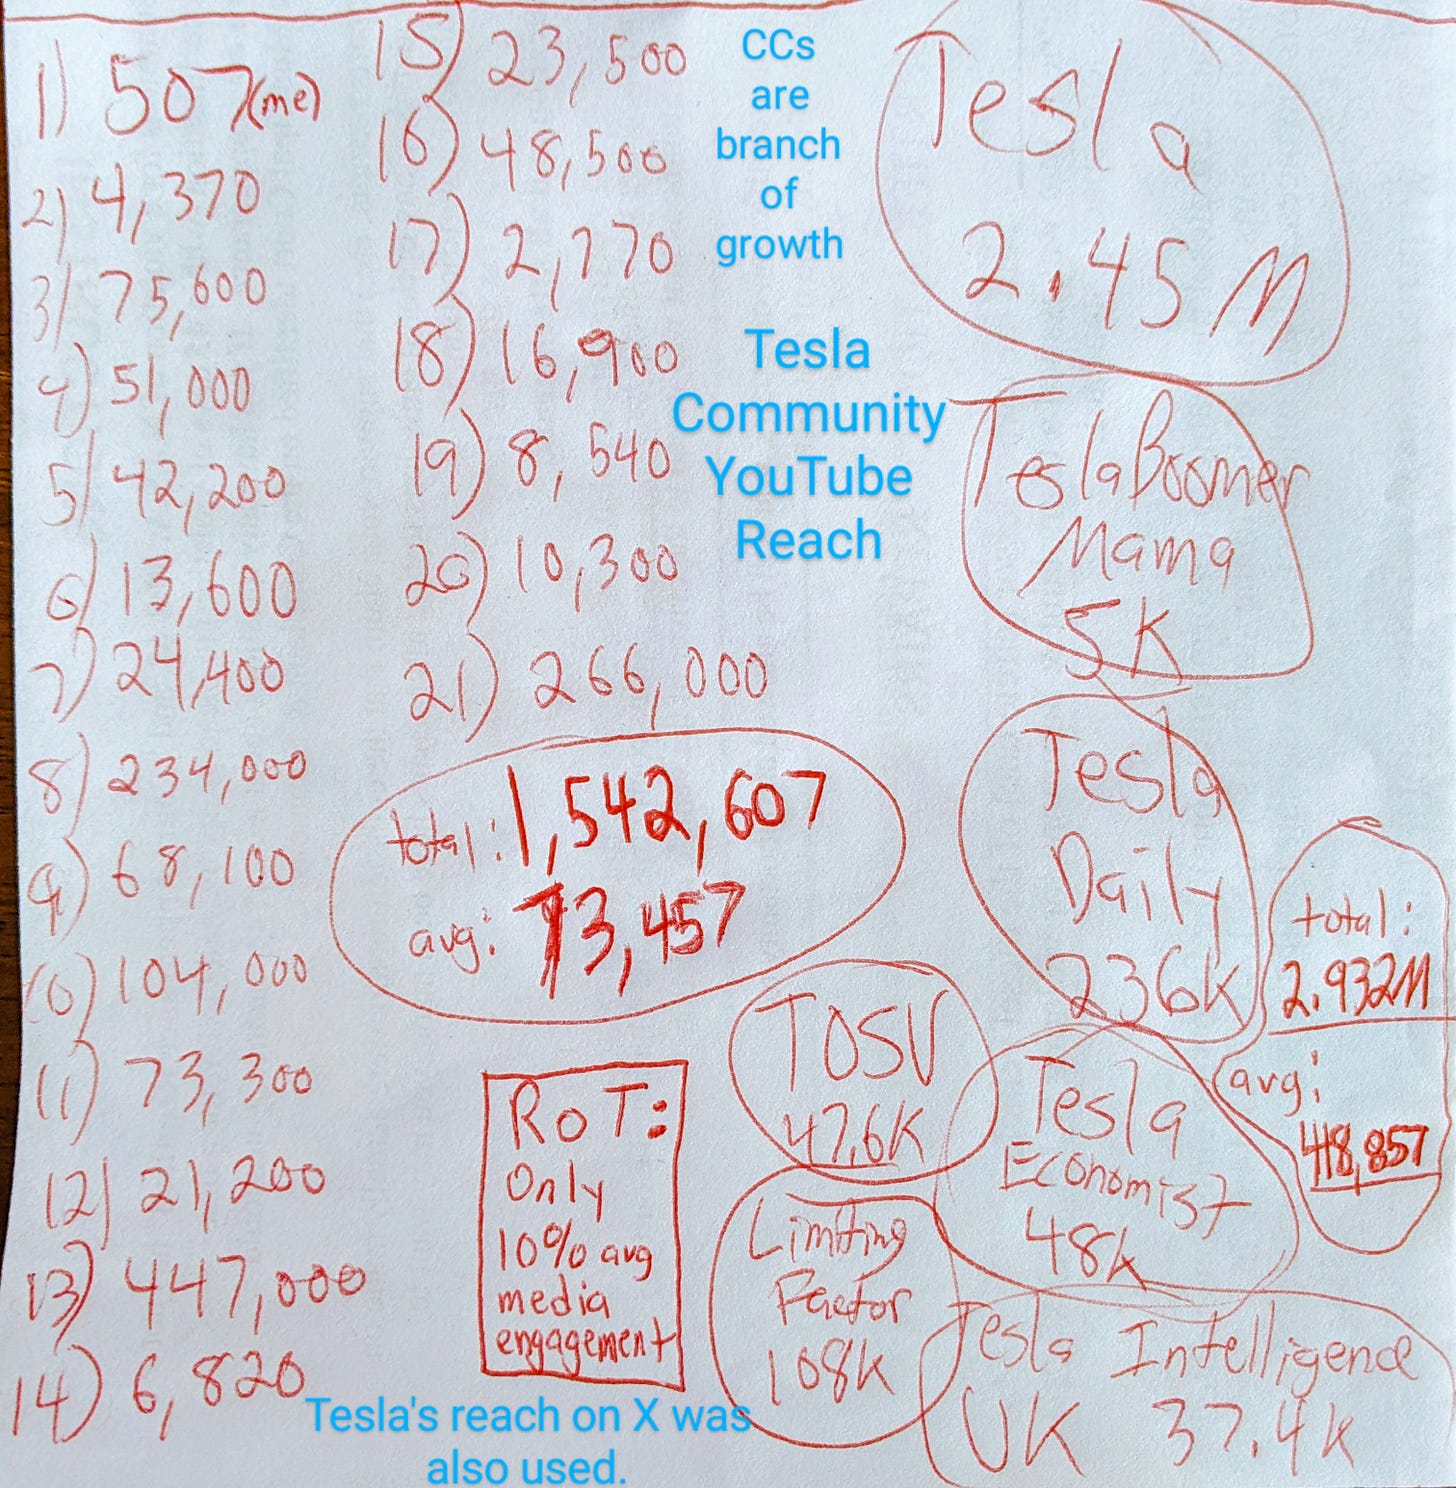 1) 507(me)
2) 4,370
3) 75,600
4) 51,000
5) 42,200
6) 13,600
7) 24,400
8) 234,000
9) 68,100
10) 104,000
11) 73,300
12) 21,200
13) 447,000
14) 6,820
15) 23,500
16) 48,500
17) 2,770
18) 16,900
19) 8,540
20) 10,300
21) 266,000
total: 1,542,607
avg: 73,457
RoT:
Only
10% avg
media
engagement
CCs
are
branch
of
growth
Tesla
Community
YouTube
Reach
Tesla
2.45M
TeslaBoomer
Mama
5K
Tesla
Daily
236K
total:
2.932M
avg:
418,857
TOSV
47.6K
Tesla
Economist
48k
Limiting
Factor
108K
Tesla Intelligence
UK 37.4k
Tesla's reach on X was
also used.